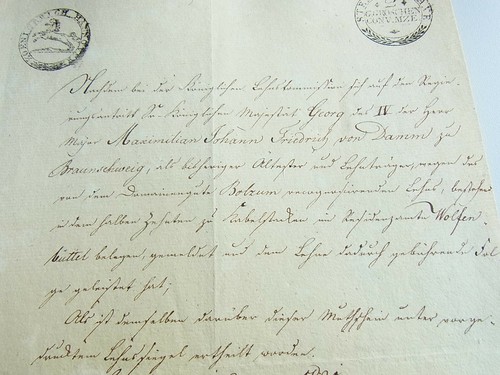 KOENIGREICH HANNOVER
STEMPEL
2 GGROSCHEN CONV. MZE
Nachdem bei der Königlichen Lehnscommission sich auf den Regie-
rungsantritt Sr. Königlichen Majestät Georg des IV der Herr
Major Maximilian Johann Friedrich von Damm zu
Braunschweig, als bisheriger Ältester und Lehnträger, wegen des
von dem Domainengute Bolzum relevirenden Lehns, bestehend
in dem halben Zehnten zu im Residenzamte Wolfen-
büttel belegen, gemeldet und den Lehne dadurch gebührende Fol-
ge geleistet hat;
Als ist demselben darüber dieser Muthschein unter vorge-
drucktem Lehnssiegel ertheilt worden.